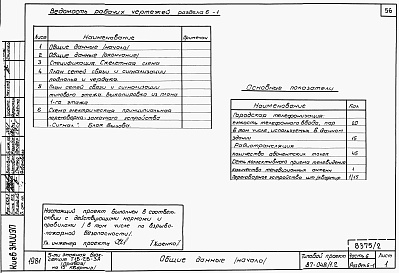 Ведомость рабочих чертежей раздела 6-1
56
Лист Наименование Примечан
1 Общие данные /начало/
2 Общие данные /окончание/
3 Спецификация. Скелетная схема
4 План сетей связи и сигнализации
подполья и чердака.
5 План сетей связи и сигнализации
типового этажа. Выкопировка из плана
1-го этажа
6 Схема электрическая принципиальная
переговорно-замочного устройства
"Сигнал". Блок вызова.
Основные показатели
Наименование Кол.
Городская телефонизация:
емкость телефонного ввода, пар 20
в том числе, используемых в данном
здании 15
Радиотрансляция
количество абонентских точек 45
Сеть коллективного приема телевидения
количество телевизионных антенн 1
Переговорное устройство шт/квартир 1/15
Настоящий проект выполнен в соответ-
ствии с действующими нормами и
правилами / в том числе по взрыво-
пожарной безопасности/
Гл. инженер проекта
8375/2
КиевЗНИИЭП
1981
5-ти этажная блок-
секция
на 15 квартир
Общие данные /начало/
Типовой проект
Часть 6
Разд. 6-1
Лист
1